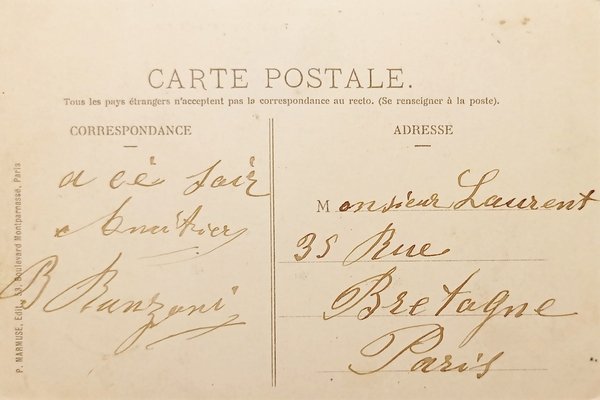 CARTE POSTALE.
Tous les pays étrangers n'acceptent pas la correspondance au recto. (Se renseigner à la poste).
CORRESPONDANCE
a cé soir
Amitier
B Ranzoni
ADRESSE
Monsieur Laurent
35 Rue
Bretagne
Paris
P. MARMUSE, Edit., 33, Boulevard Montparnasse, Paris